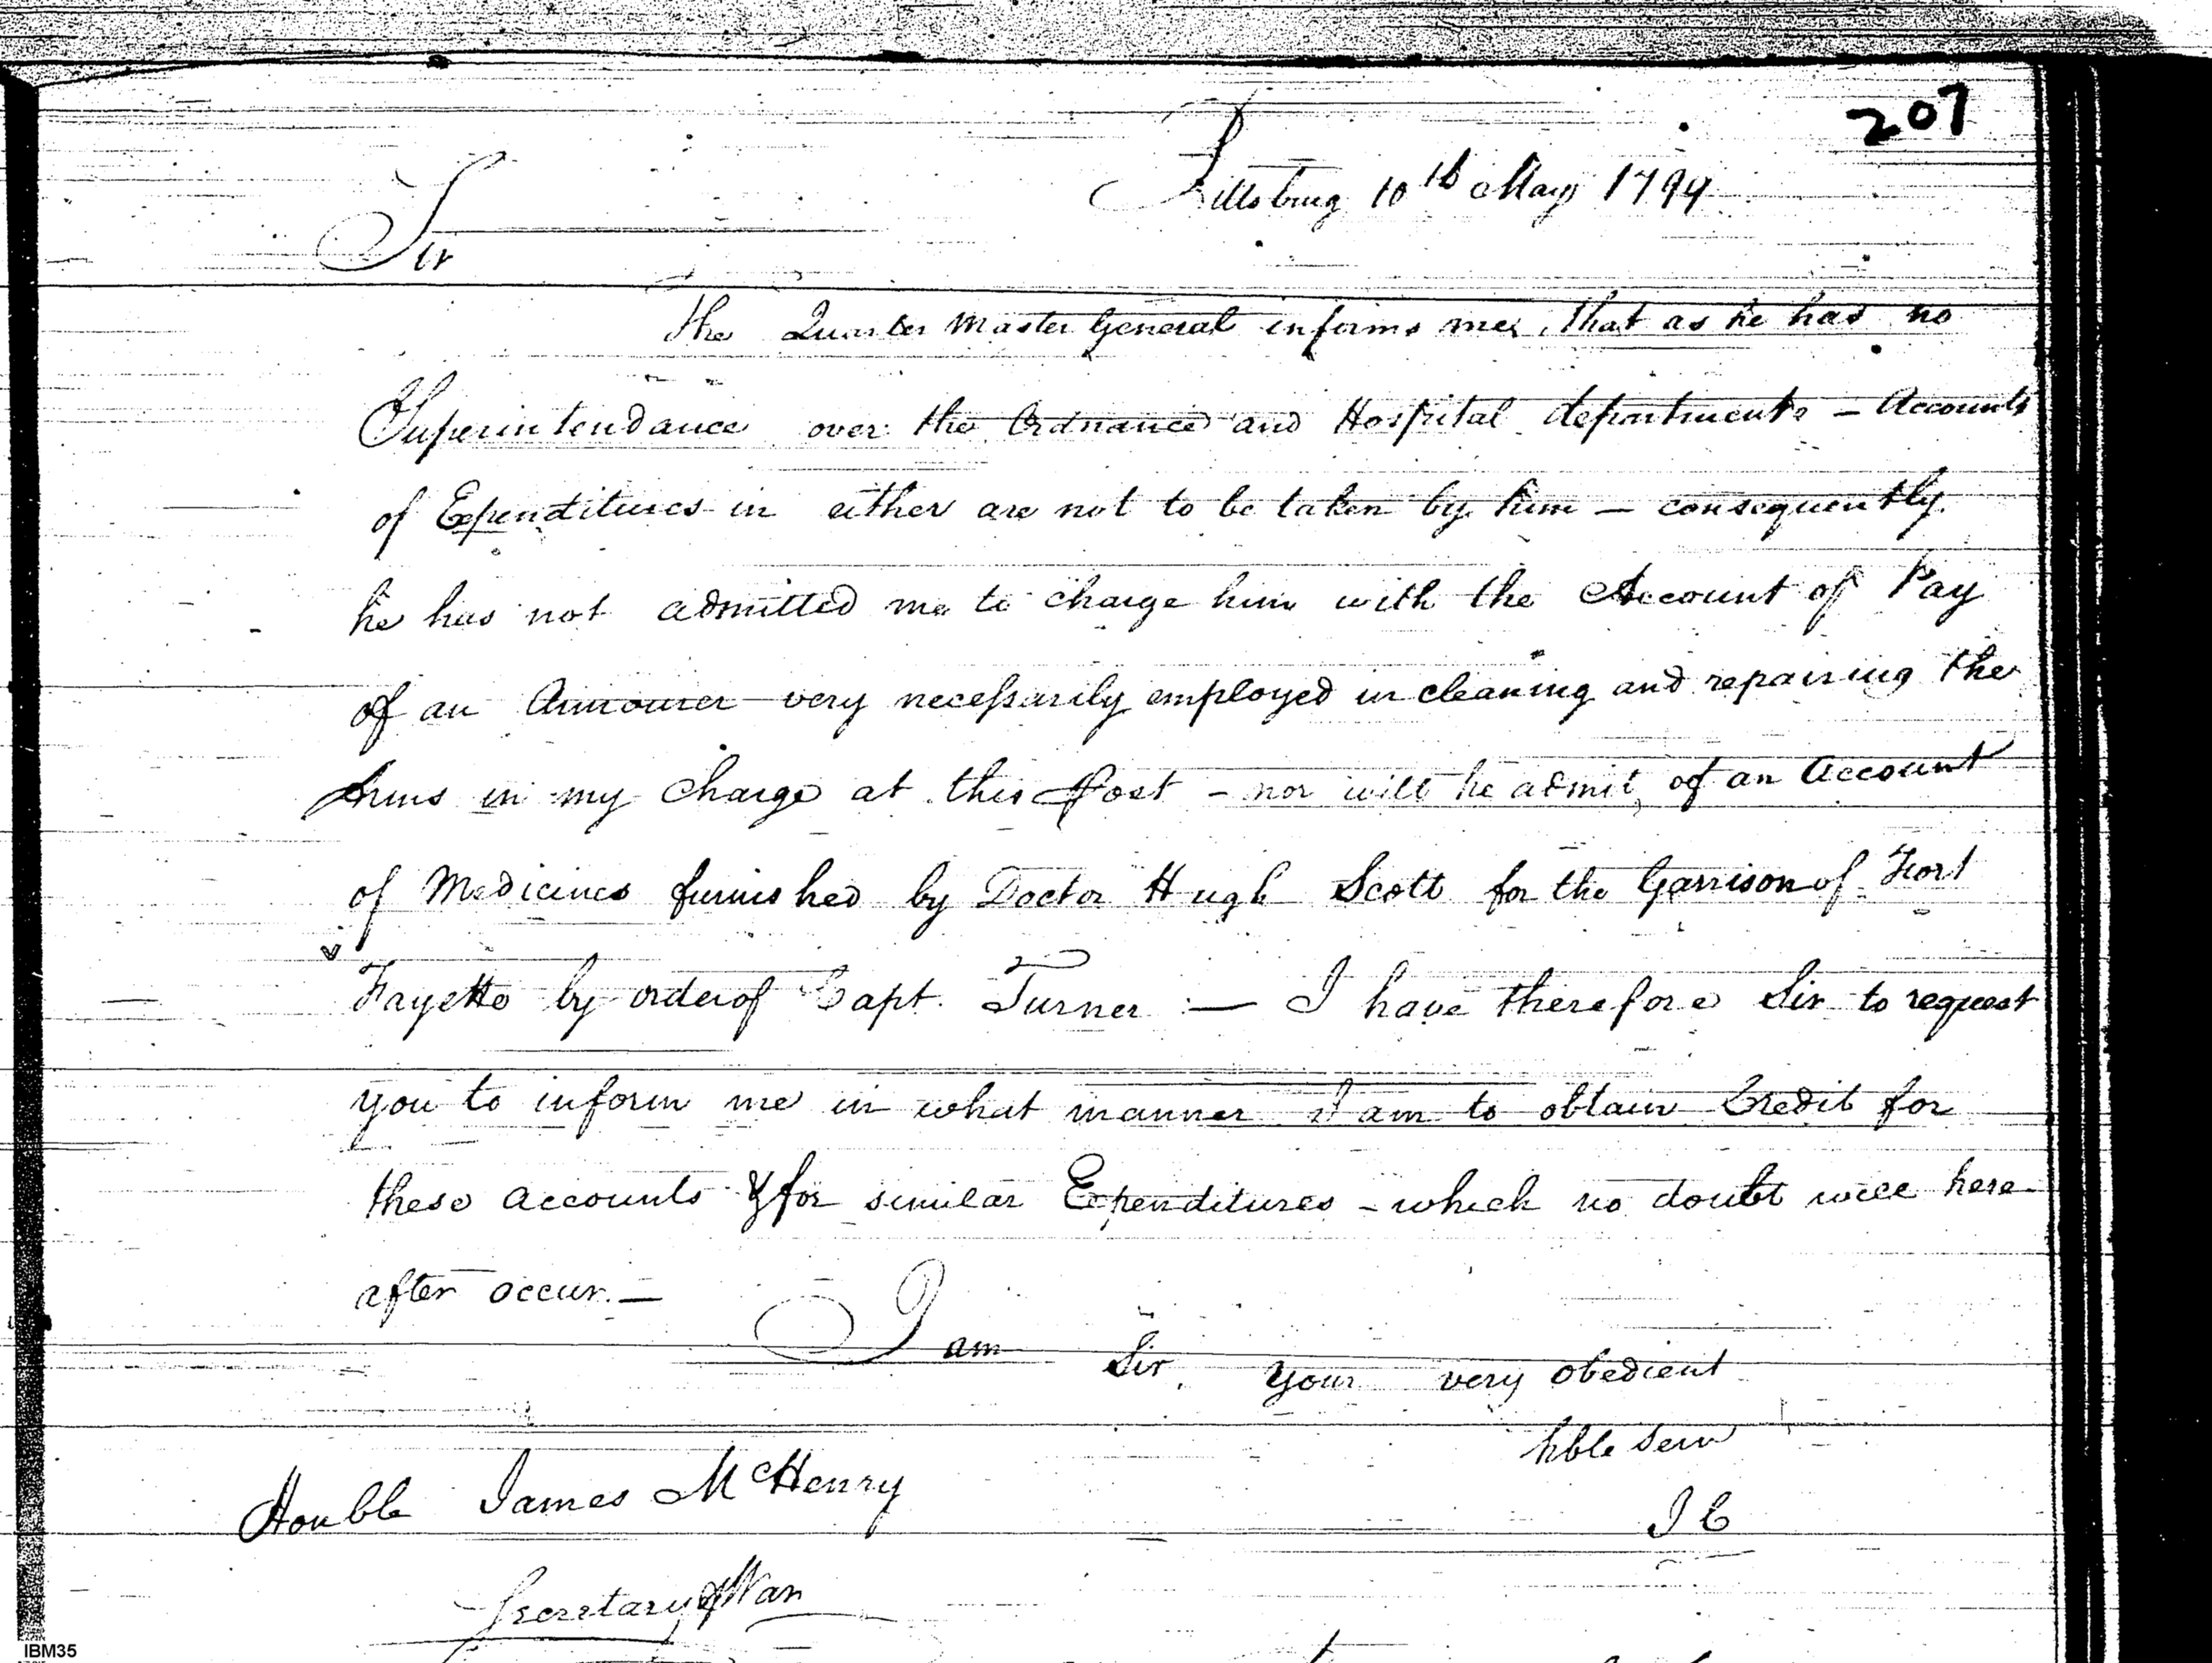 207
Pittsburg 10th May 1799
Sir
The Quarter Master General informs me, that as he has no
Superintendance over the Ordnance and Hospital departments – Accounts
of Expenditures in either are not to be taken by him – consequently
he has not admitted me to charge him with the Account of Pay
of an Armourer very necessarily employed in cleaning and repairing the
Arms in my charge at this Post – nor will he admit of an Account
of Medicines furnished by Doctor Hugh Scott for the Garrison of Fort
Fayette by order of Capt. Turner :— I have therefore Sir to request
you to inform me in what manner I am to obtain Credit for
these accounts & for similar Expenditures – which no doubt will here
after occur. —
I am Sir, your very obedient
hble Serv
I C
Honble James McHenry
Secretary of War
IBM35